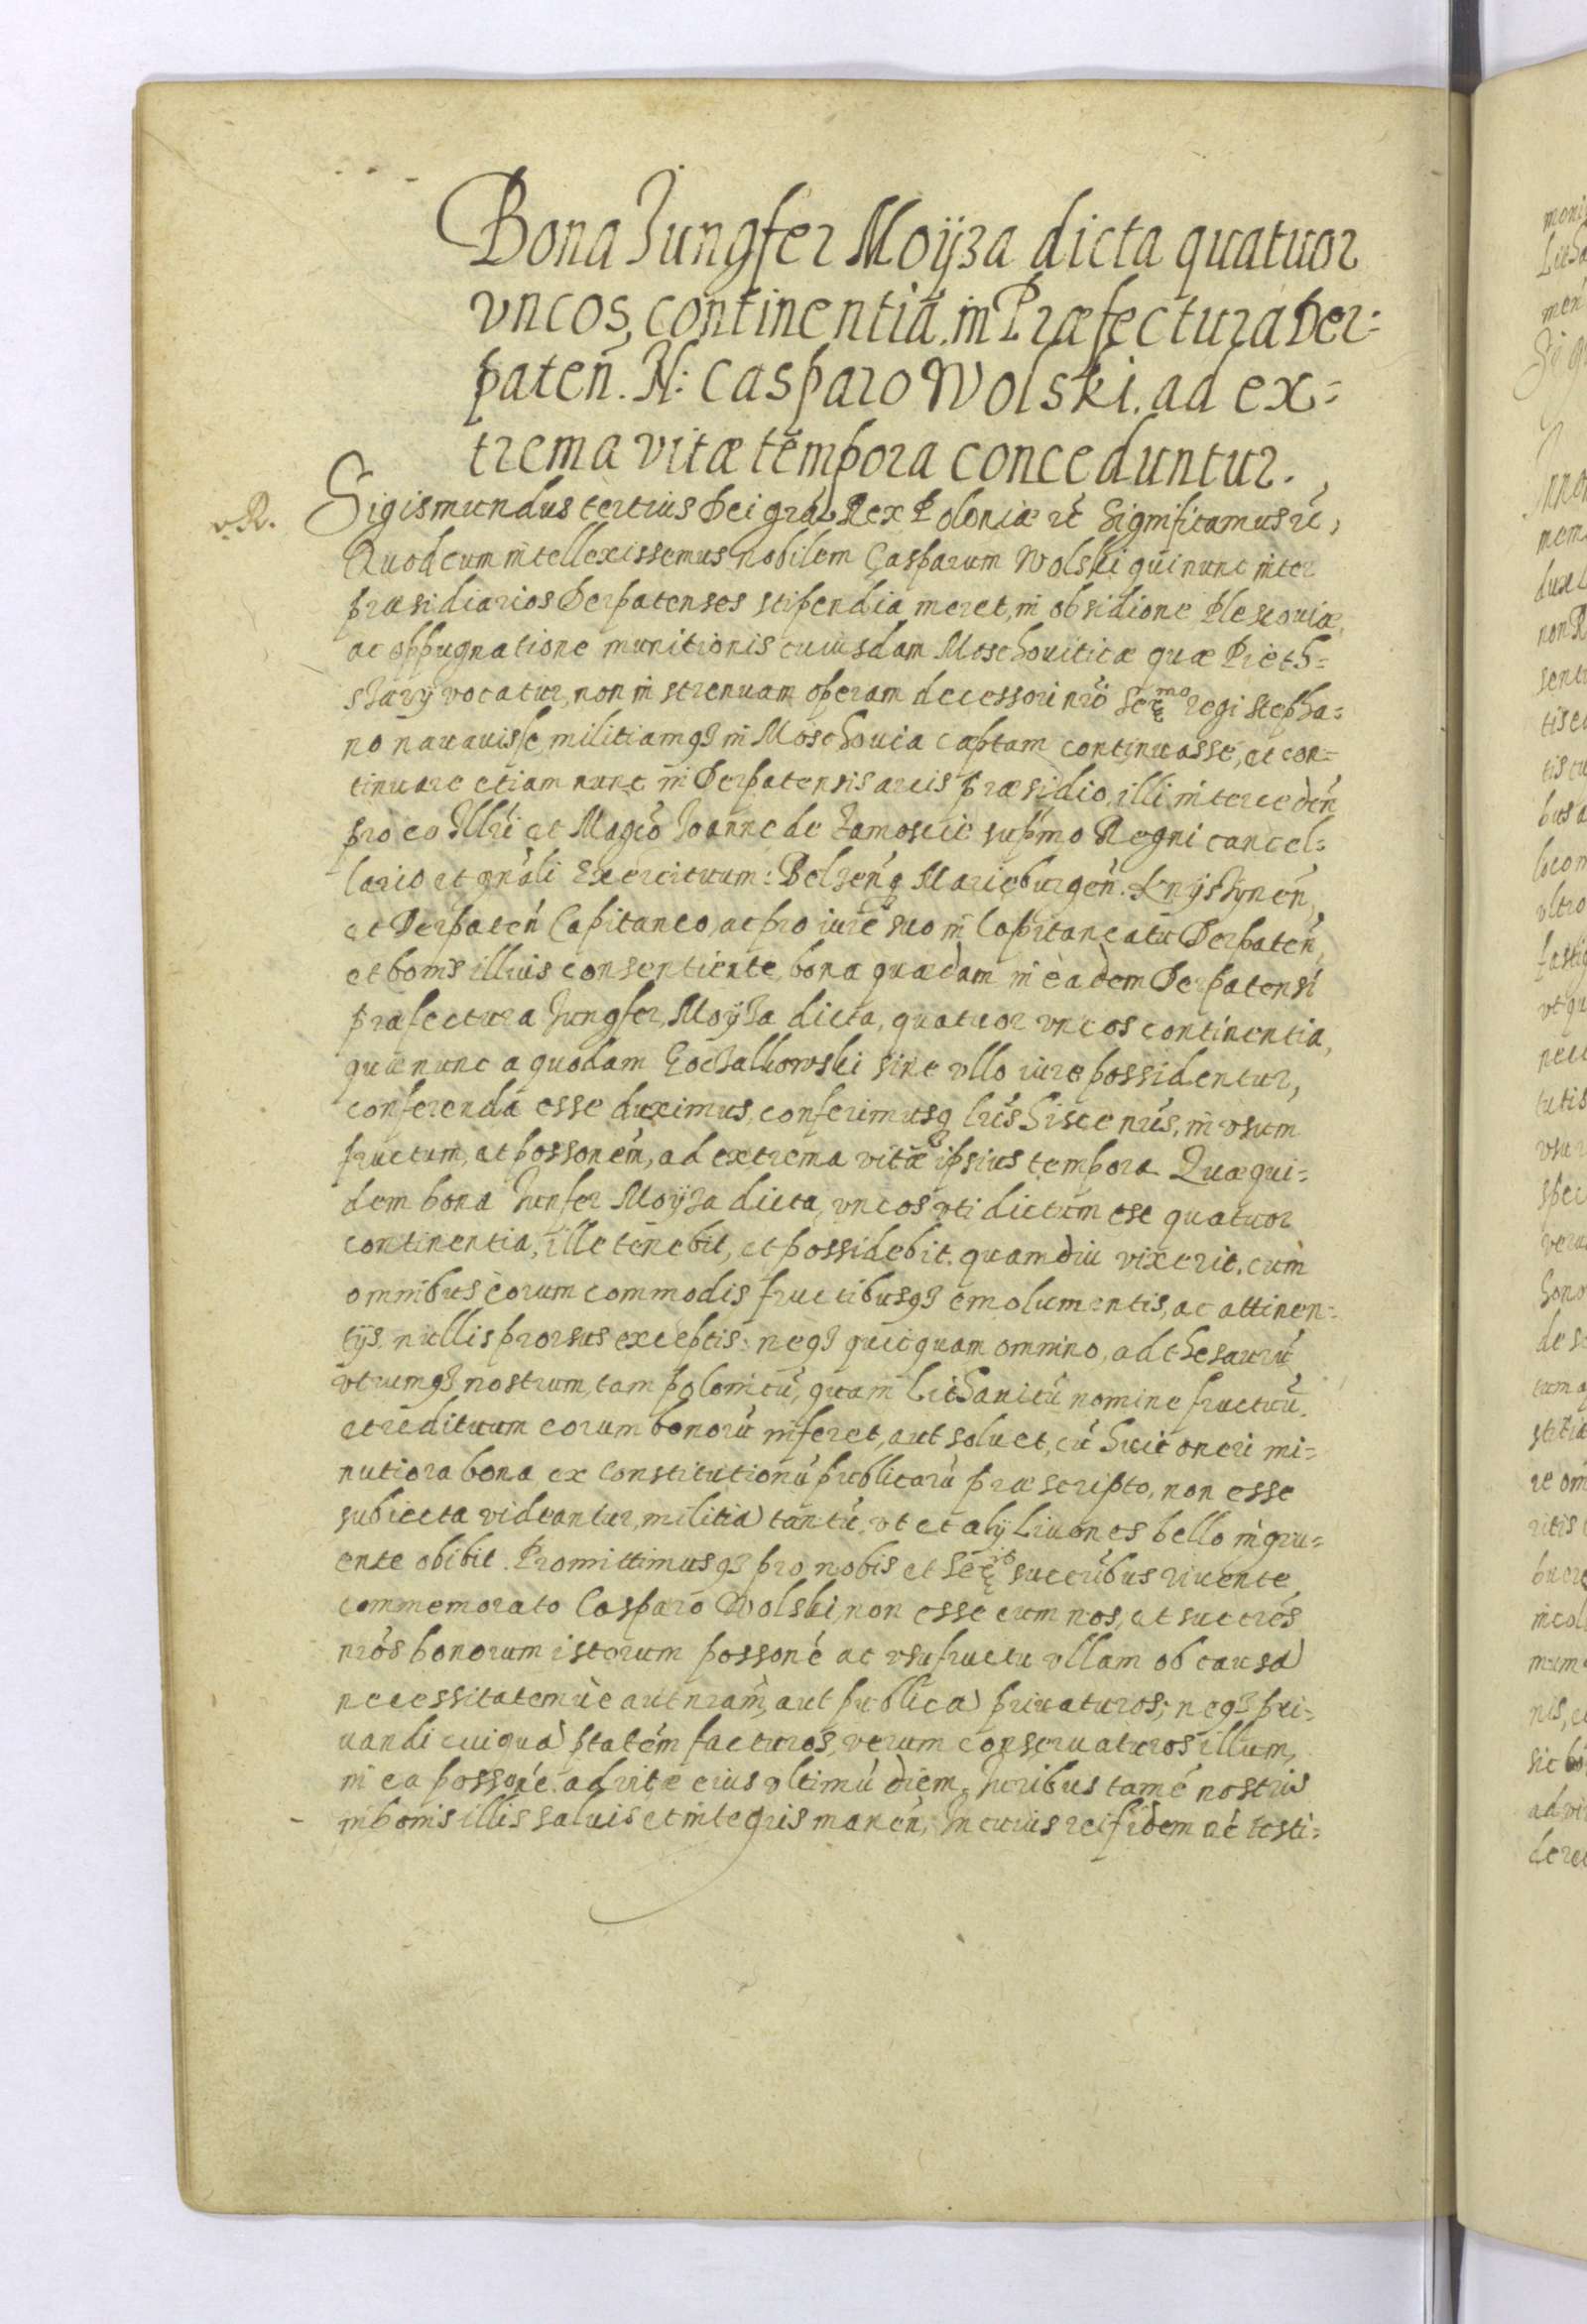 Bona Jungfer Moÿza dicta quatuor
vncos, continentia, in Præfectura Der=
paten. N: Casparo Wolski. ad ex=
trema vitæ tempora conceduntur.
v.R. Sigismundus tertius Dei grã Rex Poloniæ &c Significamus &c,
Quod cum intellexissemus nobilem Casparum Wolski qui nunc inter
præsidiarios Derpatenses stipendia meret, in obsidione Plescouiæ,
ac oppugnatione munitionis cuiusdam Moschouiticæ quæ Pieth=
vocatur, non in strenuam operam decessori nrõ Sermo regi Stepha=
no nauauisse militiamq3 in Moschouia captam continuasse, et con=
tinuare etiam nunc in Derpatensis arcis præsidio, illi interceden
pro eo Illri et Magco Joanne de Zamoscie supmo Regni cancel=
lario et gnãli Exercituum: Belzen q Marieburgen. Knÿsÿnen,
et Derpaten Capitaneo, ac pro iure suo in Capitaneatu Derpaten,
et bonis illius consentiente, bona quædam in eadem Derpatensi
præfectura Jungfer, Moÿza dicta, quatuor vncos continentia,
quæ nunc a quodam sine vllo iure possidentur,
conferenda esse duximus, conferimusq lris hisce nris, in vsum
fructum, et possonem, ad extrema vitæ ipsius tempora. Quæ qui=
dem bona Junfer Moÿza dicta, vncos vti dictum ese quatuor
continentia, ille tenebit, et possidebit. quamdiu vixerit. cum
omnibus eorum commodis fructibusq3 emolumentis, ac attinen=
tijs. nullis prorsus exceptis: neq3 quicquam omnino, ad thesaurũ
vtrumq3 nostrum, tam polonicũ, quam Lithanicũ nomine fructuũ
et redituum eorum bonorũ inferet, aut soluet, cũ huic oneri mi=
nutiora bona ex Constitutionũ publicarũ præscripto, non esse
subiecta videantur, militiã tantũ, vt et alij Liuones bello ingru=
ente obibit. Promittimusq3 pro nobis et succribus viuente,
commemorato Casparo Wolski, non esse eum nos, et succres
nrõs bonorum istorum possone ac vsufructu vllam ob causã
necessitatemùe aut nram, aut publicã priuaturos, neq3 pri=
uandi cuiquã statem facturos, verum conseruaturos illum,
in ea possone. ad vitæ eius vltimũ diem, Juribus tamẽ nostris
in bonis illis saluis et integris manen, In cuius rei fidem ac testi=